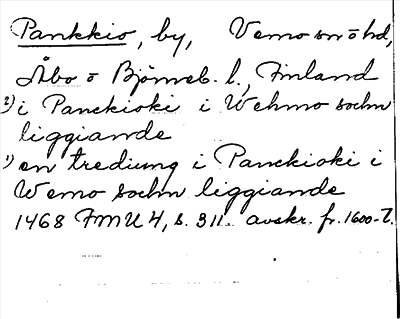 Pankkio, by, Vemo sn o hd,
Åbo o Björneb. l., Finland
2) i Panckioki i Wehmo sochn
liggiande
1) en trediung i Panckioki i
Wemo sochn liggiande
1468 FMU 4, s. 311. avskr. fr. 1600-t.